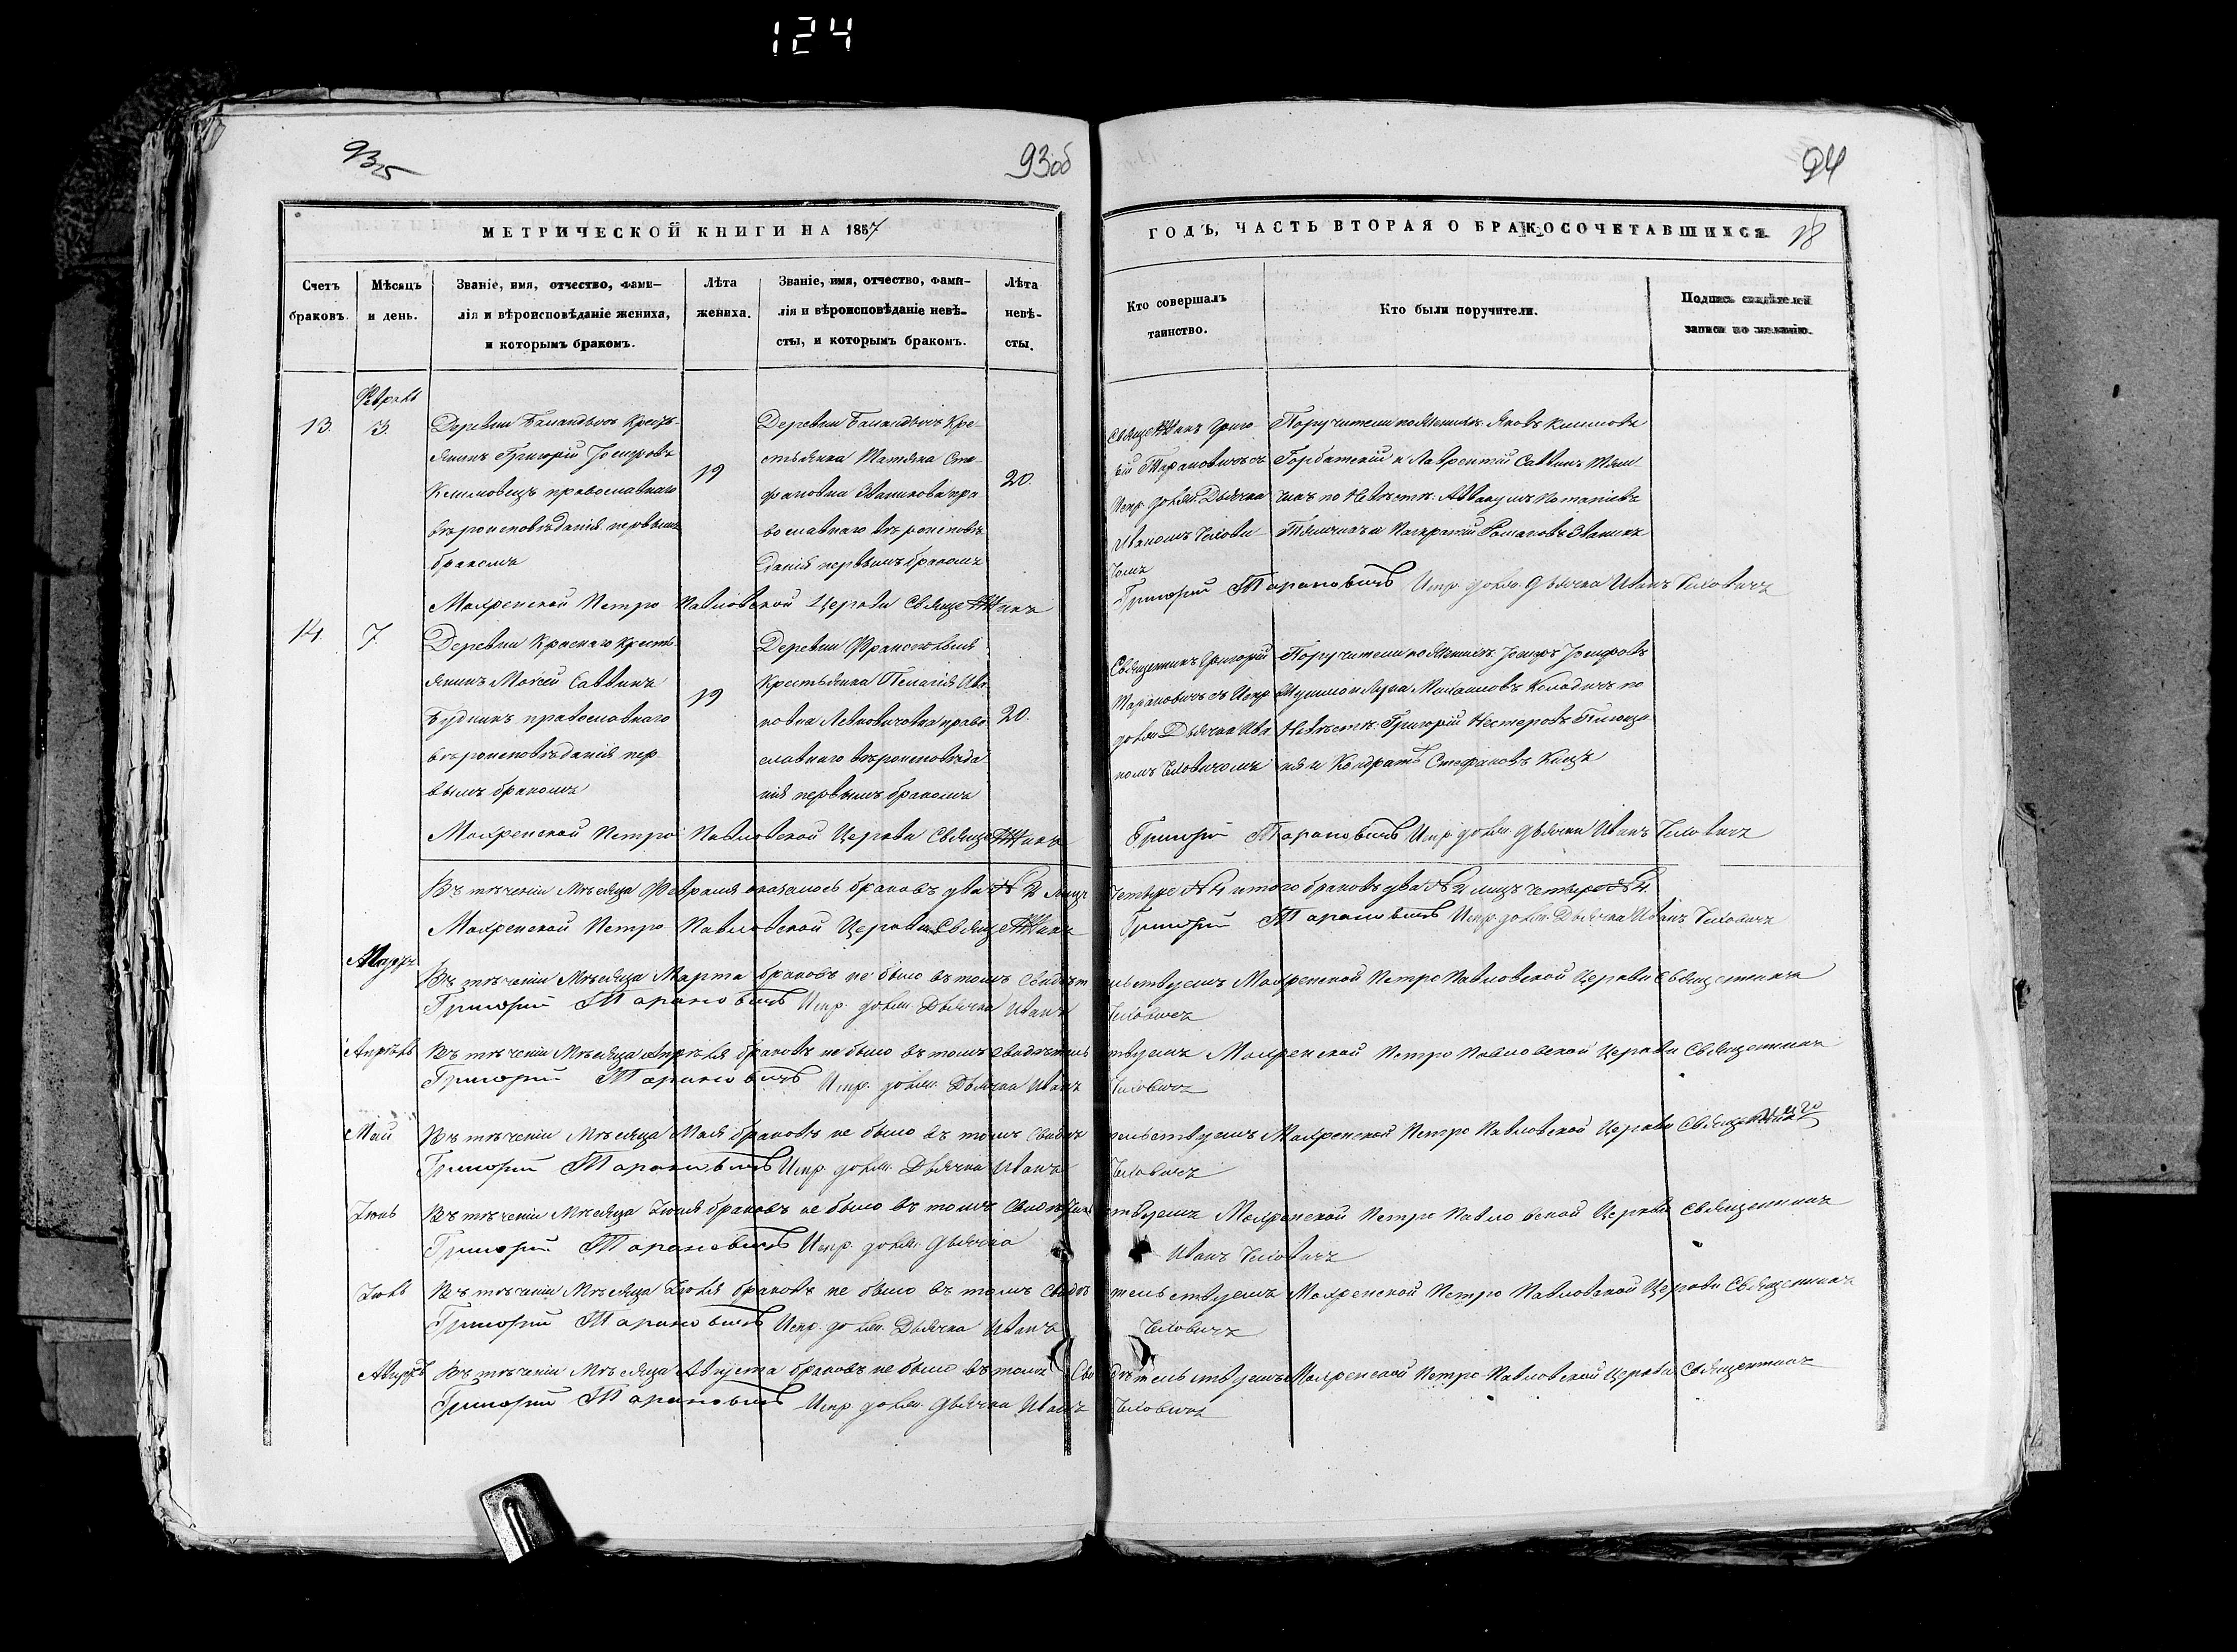 124
93об
94
МЕТРИЧЕСКОЙ КНИГИ НА 1857
ГОДЪ, ЧАСТЬ ВТОРАЯ О БРАКОСОЧЕТАВШИХСЯ
18
Счетъ браковъ.
Мѣсяцъ и день.
Званіе, имя, отчество, фами-
лія и вѣроисповѣданіе жениха,
и которымъ бракомъ.
Лѣта
жениха.
Званіе, имя, отчество, фами-
лія и вѣроисповѣданіе невѣ-
сты, и которымъ бракомъ.
Лѣта
невѣ-
сты.
Кто совершалъ
таинство.
Кто были поручители.
Подпись свидѣтелей
записи по желанію.
Февраль
13.
3.
Деревни Баландычъ Кресть-
янинъ Григорій Іосифовъ
Климовецъ православнаго
вѣроисповѣданія первымъ
бракомъ
19
Деревни Баландычъ Кре-
стьянка Татіяна Сте-
фановна Званикова пра
вославнаго вѣроисповѣ
данія первымъ бракомъ
20.
Священникъ Григо
рій Тарановичъ съ
Испр. долж. Дьячка
Иваномъ
Поручители по Женихѣ: Яковъ Климовъ
Горбатскій и Лаврентій Саввинъ
по Невѣстѣ: Аввакумъ Потапіевъ
и Панкратій Романовъ Званикъ
Мохренской Петро Павловской Церкви Священникъ
Григорій Тарановичъ Испр. долж. Дьячка Иванъ
14.
7.
Деревни Краснаго Кресть-
янинъ Моисей Саввинъ
Будникъ православнаго
вѣроисповѣданія пер-
вымъ бракомъ
19
Деревни
Крестьянка Пелагія Ива
новна Левковичовна право
славнаго вѣроисповѣда
нія первымъ бракомъ
20.
Священникъ Григорій
Тарановичъ съ Испр.
долж. Дьячка Ива
номъ
Поручители по Женихѣ: Іосифъ Іосифовъ
и Лука Михаиловъ Колядичъ по
Невѣстѣ: Григорій Нестеровъ
и Кондратъ Стефановъ Кицъ
Мохренской Петро Павловской Церкви Священникъ
Григорій Тарановичъ Испр. долж. Дьячка Иванъ
Въ теченіи Мѣсяца Февраля оказалось браковъ два № 2 лицъ четыре № 4 итого браковъ два № 2 лицъ четыре № 4.
Мохренской Петро Павловской Церкви Священникъ Григорій Тарановичъ Испр. долж. Дьячка Иванъ
Мартъ
Въ теченіи Мѣсяца Марта браковъ не было въ томъ свидѣтельствуемъ Мохренской Петро Павловской Церкви Священникъ
Григорій Тарановичъ Испр. долж. Дьячка Иванъ
Апрѣль
Въ теченіи Мѣсяца Апрѣля браковъ не было въ томъ свидѣтельствуемъ Мохренской Петро Павловской Церкви Священникъ
Григорій Тарановичъ Испр. долж. Дьячка Иванъ
Май
Въ теченіи Мѣсяца Мая браковъ не было въ томъ свидѣтельствуемъ Мохренской Петро Павловской Церкви
Григорій Тарановичъ Испр. долж. Дьячка Иванъ
Іюнь
Въ теченіи Мѣсяца Іюня браковъ не было въ томъ свидѣтельствуемъ Мохренской Петро Павловской Церкви Священникъ
Григорій Тарановичъ Испр. долж. Дьячка Иванъ
Іюль
Въ теченіи Мѣсяца Іюля браковъ не было въ томъ свидѣтельствуемъ Мохренской Петро Павловской Церкви Священникъ
Григорій Тарановичъ Испр. долж. Дьячка Иванъ
Августъ
Въ теченіи Мѣсяца Августа браковъ не было въ томъ свидѣтельствуемъ Мохренской Петро Павловской Церкви Священникъ
Григорій Тарановичъ Испр. долж. Дьячка Иванъ